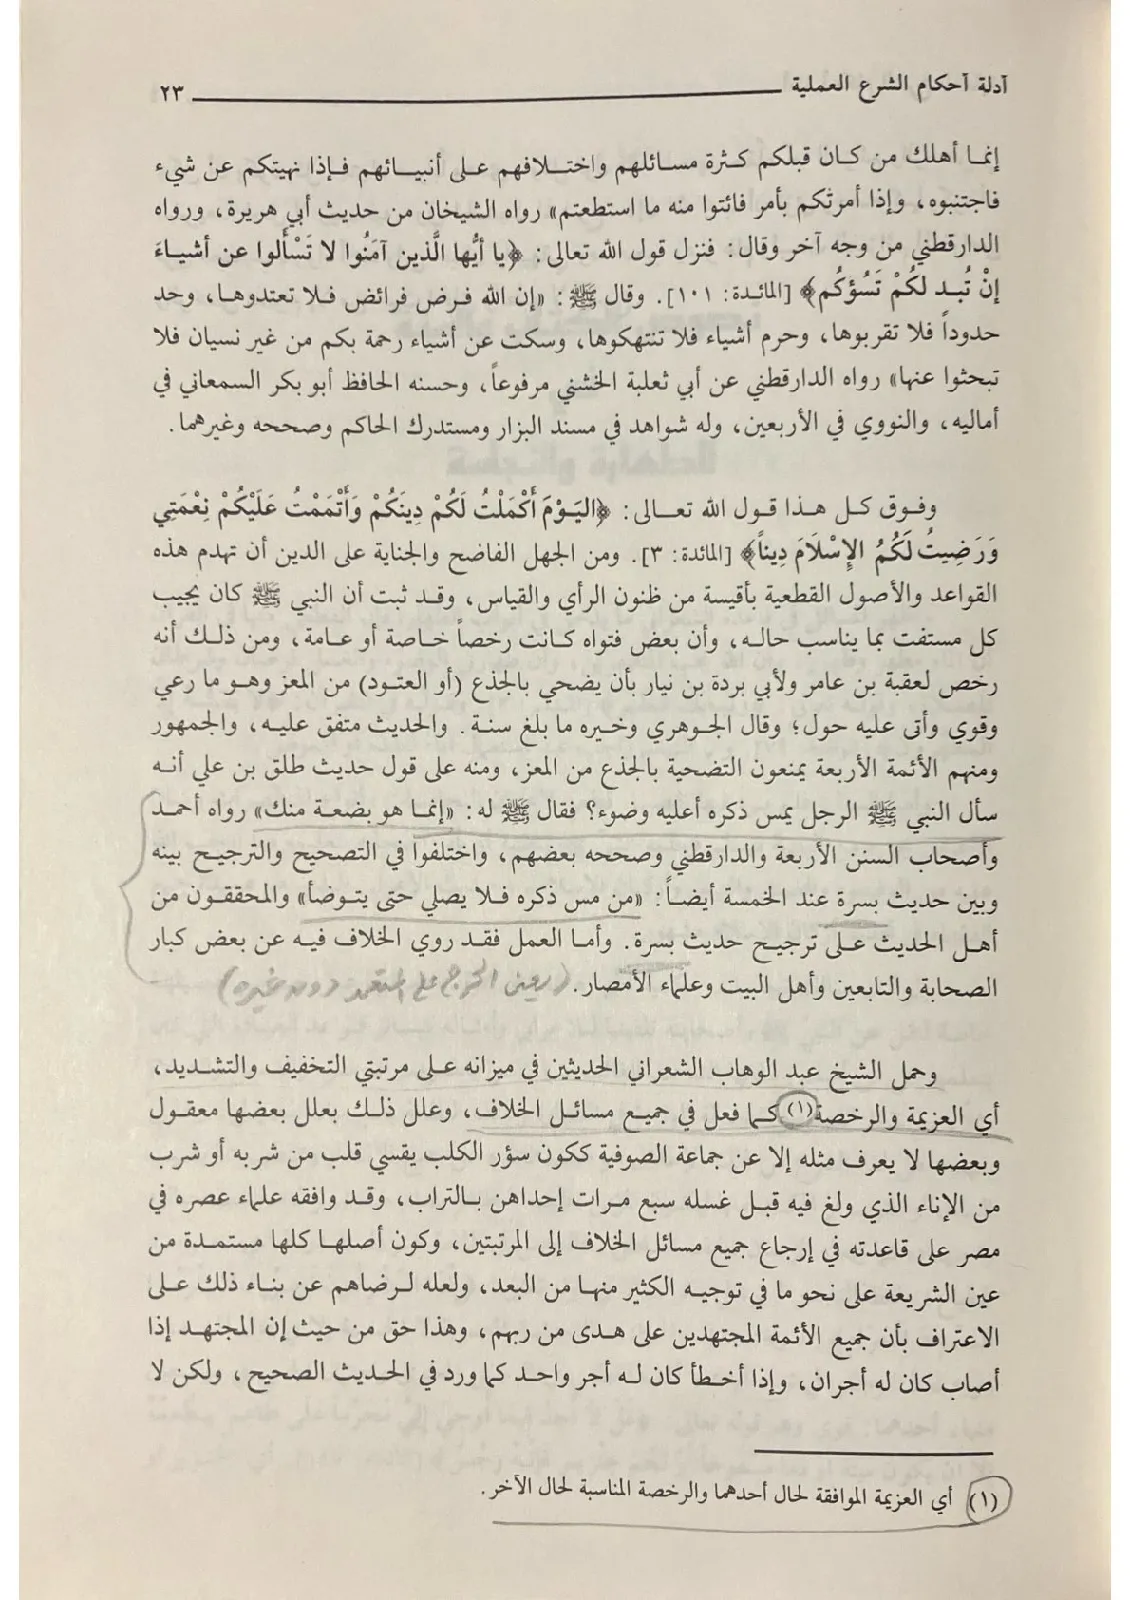 أدلة أحكام الشرع العملية ٢٣
إنما أهلك من كان قبلكم كثرة مسائلهم واختلافهم على أنبيائهم فإذا نهيتكم عن شيء
فاجتنبوه، وإذا أمرتكم بأمر فائتوا منه ما استطعتم» رواه الشيخان من حديث أبي هريرة، ورواه
الدارقطني من وجه آخر وقال: فنزل قول الله تعالى: ﴿يا أيُّها الَّذين آمَنُوا لا تَسْأَلوا عن أشياءَ
إنْ تُبد لَكُمْ تَسُؤكُم﴾ [المائدة: ١٠١]. وقال ﷺ: «إن الله فرض فرائض فلا تعتدوها، وحد
حدوداً فلا تقربوها، وحرم أشياء فلا تنتهكوها، وسكت عن أشياء رحمة بكم من غير نسيان فلا
تبحثوا عنها» رواه الدارقطني عن أبي ثعلبة الخشني مرفوعاً، وحسنه الحافظ أبو بكر السمعاني في
أماليه، والنووي في الأربعين، وله شواهد في مسند البزار ومستدرك الحاكم وصححه وغيرهما.
وفوق كل هذا قول الله تعالى: ﴿اليَوْمَ أكْمَلْتُ لَكُمْ دِينَكُمْ وَأَتْمَمْتُ عَلَيْكُمْ نِعْمَتِي
وَرَضِيتُ لَكُمُ الإسْلَامَ دِيناً﴾ [المائدة: ٣]. ومن الجهل الفاضح والجناية على الدين أن تهدم هذه
القواعد والأصول القطعية بأقيسة من ظنون الرأي والقياس، وقد ثبت أن النبي ﷺ كان يجيب
كل مستفت بما يناسب حاله، وأن بعض فتواه كانت رخصاً خاصة أو عامة، ومن ذلك أنه
رخص لعقبة بن عامر ولأبي بردة بن نيار بأن يضحي بالجذع (أو العتود) من المعز وهو ما رعي
وقوي وأتى عليه حول؛ وقال الجوهري وخيره ما بلغ سنة. والحديث متفق عليه، والجمهور
ومنهم الأئمة الأربعة يمنعون التضحية بالجذع من المعز، ومنه على قول حديث طلق بن علي أنه
سأل النبي ﷺ الرجل يمس ذكره أعليه وضوء؟ فقال ﷺ له: «إنما هو بضعة منك» رواه أحمد
وأصحاب السنن الأربعة والدارقطني وصححه بعضهم، واختلفوا في التصحيح والترجيح بينه
وبين حديث بسرة عند الخمسة أيضاً: «من مس ذكره فلا يصلي حتى يتوضأ» والمحققون من
أهل الحديث على ترجيح حديث بسرة. وأما العمل فقد روي الخلاف فيه عن بعض كبار
الصحابة والتابعين وأهل البيت وعلماء الأمصار.
وحمل الشيخ عبد الوهاب الشعراني الحديثين في ميزانه على مرتبتي التخفيف والتشديد،
أي العزيمة والرخصة(١) كما فعل في جميع مسائل الخلاف، وعلل ذلك بعلل بعضها معقول
وبعضها لا يعرف مثله إلا عن جماعة الصوفية ككون سؤر الكلب يقسي قلب من شربه أو شرب
من الإناء الذي ولغ فيه قبل غسله سبع مرات إحداهن بالتراب، وقد وافقه علماء عصره في
مصر على قاعدته في إرجاع جميع مسائل الخلاف إلى المرتبتين، وكون أصلها كلها مستمدة من
عين الشريعة على نحو ما في توجيه الكثير منها من البعد، ولعله لرضاهم عن بناء ذلك على
الاعتراف بأن جميع الأئمة المجتهدين على هدى من ربهم، وهذا حق من حيث إن المجتهد إذا
أصاب كان له أجران، وإذا أخطأ كان له أجر واحد كما ورد في الحديث الصحيح، ولكن لا
(١) أي العزيمة الموافقة لحال أحدهما والرخصة المناسبة لحال الآخر.